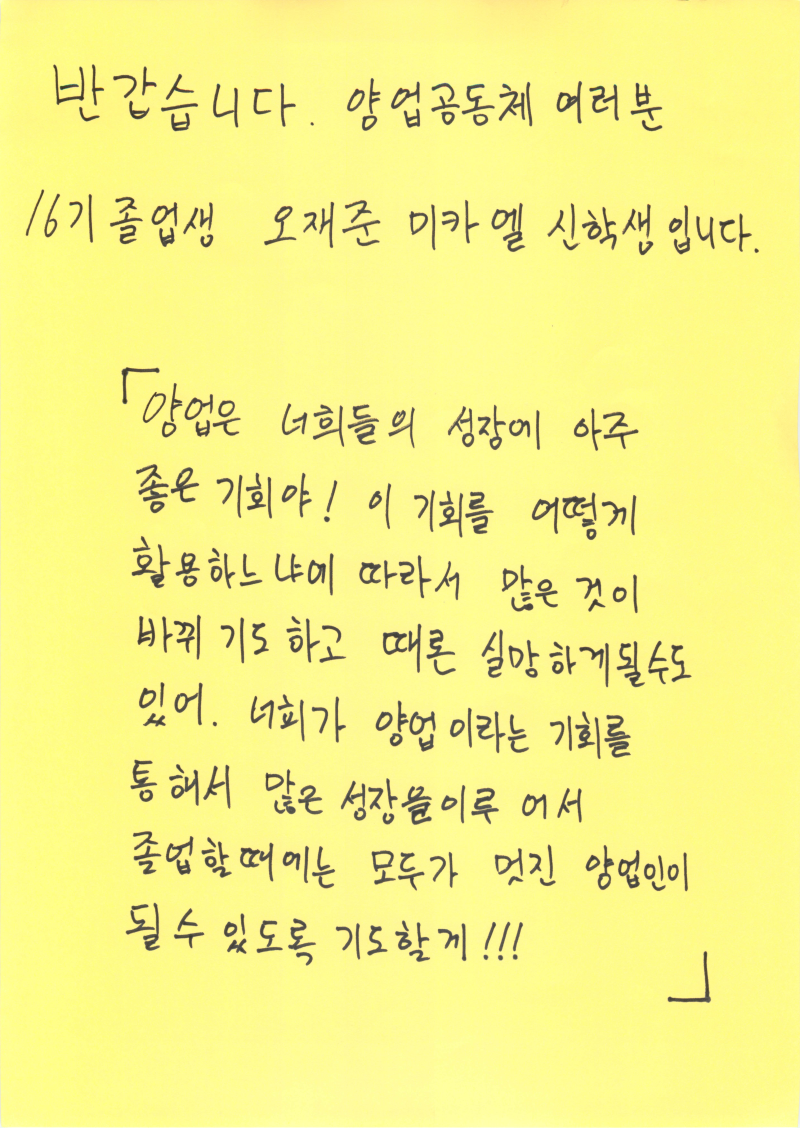 반갑습니다. 양업공동체 여러분
16기 졸업생 오재준 미카엘 신학생입니다.
「양업은 너희들의 성장에 아주
좋은 기회야! 이 기회를 어떻게
활용하느냐에 따라서 많은 것이
바뀌기도 하고 때론 실망하게될수도
있어. 너희가 양업이라는 기회를
통해서 많은 성장을이루어서
졸업할때에는 모두가 멋진 양업인이
될 수 있도록 기도할게!!!
」